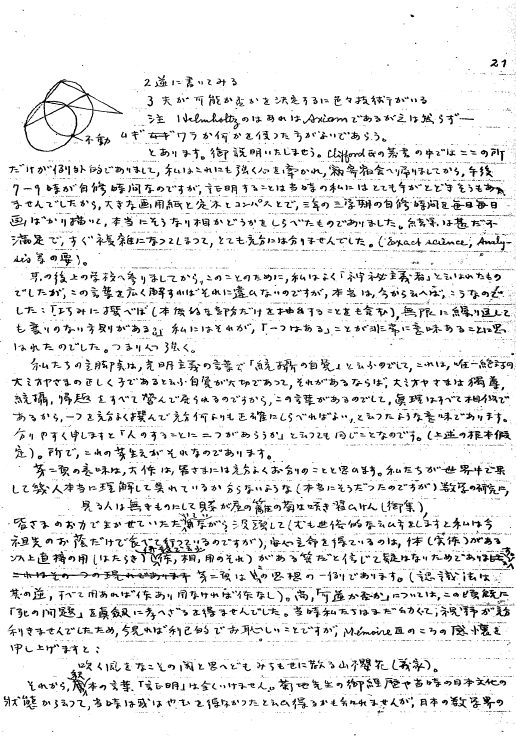 21
2 逆に書いてみる
3 夫が可能か否かを決定するに色々技術がいる
注 Helmholtzのはあれは Axiom であるが之は然らず─
不動
ムギワラか何かを使った方がよいであらう。
とあります。御説明いたしませう。Clifford の の中では ここの所
だけが例外的でありまして, 私はこれにも強く心を奪かれ, 寄宿舎へ帰りましてから, 午後
7-9時が自修時間なのですが, 証明することは当時の私にはとても手がとどきさうもあり
ませんでしたから, 大きな画用紙と定木とコンパスとで, 三年の三学期の自修時間を毎日毎日
画ばかり描いて, 本当にさうなり相かどうかをしらべたものでありました。結果は甚だ不
満足で, すぐ複雑になってしまって, とても充分には合りませんでした。(Exact science, Analy-
sis 等の要)。
其の後上の学校へ参りましてから, このことのために, 私はよく「神秘主義者」といはれたもの
でしたが, この言葉を広く解すればそれに違ひないのですが, 本当は, 今から云へば, こうなので
した:「巧みに選べば(本後的な部分だけを抽出することをも含む), 無限に繰り返して
も誤りのない予則がある」。私にはそれが,「一つはある」ことが非常に意味あることに思
はれたのでした。つまり 強く。
私たちの主脚点は, 光明主義の言葉で「統摂の自覚」と云ふのでして, これは, 唯一絶対の
大ミオヤさまの正しく子であると云ふ自覚が大切であって, それがあるならば, 大ミオヤさまは独尊,
統摂, 帰趣 をすべて誉んで居られるのですから, この言葉があるのでして, 真理はすべて相似で
あるから, 一つを充分よく撰んで充分何よりも正確にしらべればよい, と云ったような意味であります。
合りやすく申しますと「人のすることに二つがあらうか」と云っても同じことなのです。(上述の根本假
定)。所で, これの芽生えがそれなのであります。
第二項の意味は, 大体は, 皆さまには充分よくお合りのことと思ひます。私たちが世界中で果
して幾人本当に理解して呉れているか合らないような(本当にさうだったのですが)数学の研究に,
見る人は無きものにして賤が屋の籬の菊は咲き殺らけん(御集),
皆さまのお力で生かせていただ 乍ら没頭して(尤も世俗的な云ひ方をしますと私は
祖先のお蔭だけで食べて行っているのですが), 安心立命を得ているのは, 体(実体)がある
以上直接の用(はたらき)(体, 相, 用のそれ)がある筈だと信じて疑はないためであり
第二項は の思想の一例であります。(認識法は
其の逆, すべて用あれば体あり用なければ体なし)。尚,「可逆か否か」については, この頃真に
「死の問題」を真剣に考へざるを得ませんでした。当時私たちはまだ幼くて, 視野が充
利きませんでしたため, 今見れば利己的でお恥しいことですが, Mémoire のころの感懐を
申し上げますと:
吹く風をなこその関と思へどもみちもせに散る山桜花(義家)。
それから, 本の言葉,「証明」は全くいけません。菊地先生の御経歴や当時の日本文化の
状態から云って, 当時は或はやむを得なかったと云ひ得るかも知れませんが, 日本の数学界の